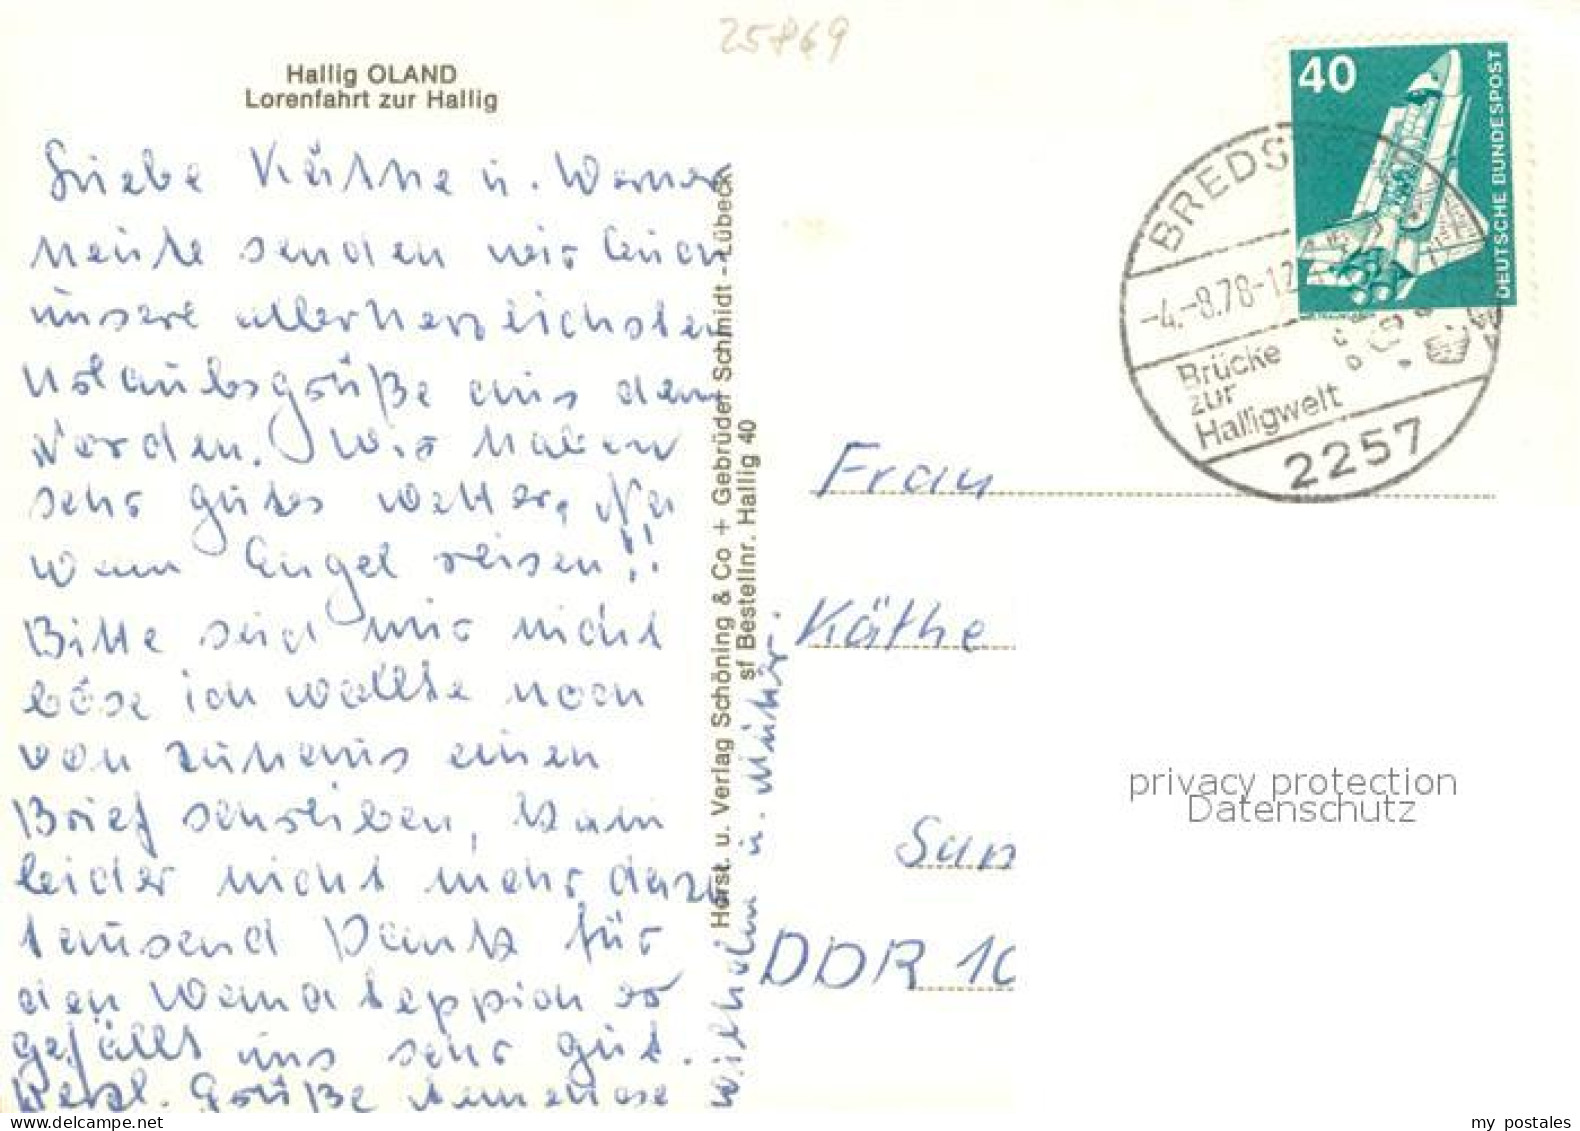 25869
Hallig OLAND
Lorenfahrt zur Hallig
Liebe Käthe u. Werner
heute senden wir Euch
unsere allerherzlichsten
Urlaubsgrüße aus dem
Norden. Wir haben
sehr gutes Wetter. Na
wenn Engel reisen!!
Bitte seid mir nicht
böse ich wollte noch
von zuhaus einen
Brief schreiben, kam
leider nicht mehr dazu
tausend Dank für
den Wandteppich er
gefällt uns sehr gut.
Herzl. Grüße
Wilhelm u. Mutti.
Horst. u. Verlag Schöning & Co + Gebrüder Schmidt - Lübeck
sf Bestellnr. Hallig 40
40
DEUTSCHE BUNDESPOST
BREDST
-4.-8.78-12
Brücke
zur
Halligwelt
2257
Frau
Käthe
DDR 10
privacy protection
Datenschutz
my postales